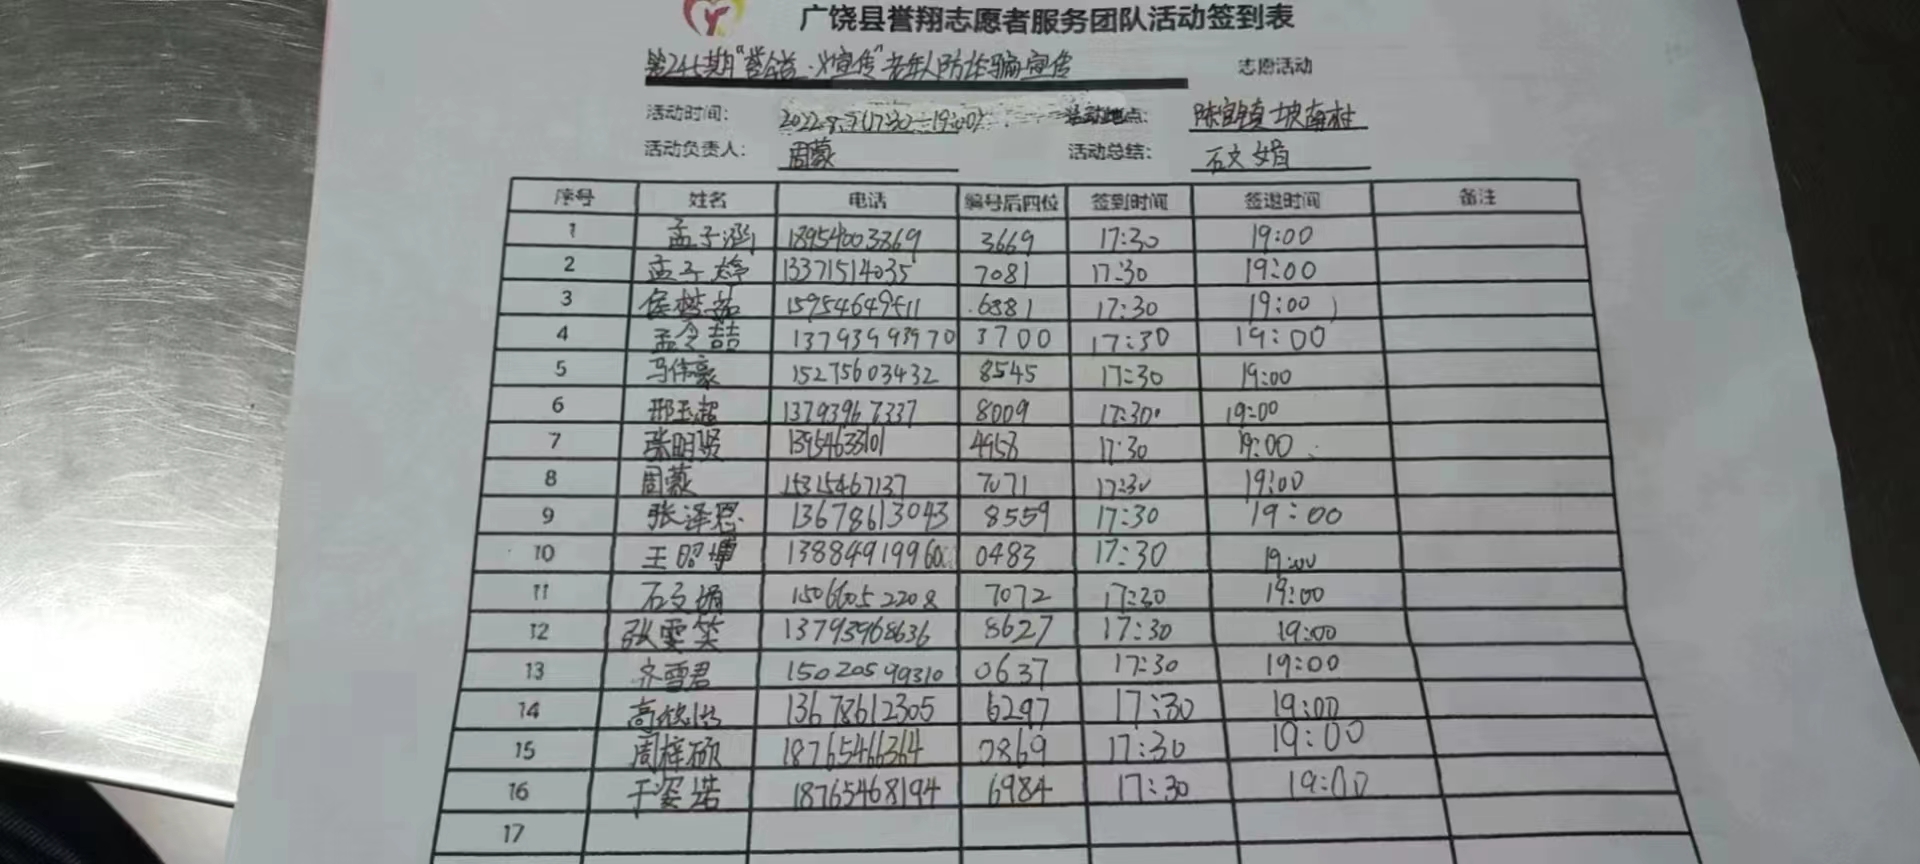 广饶县誉翔志愿者服务团队活动签到表
第245期“誉公益·义宣传”老年人防诈骗宣传 志愿活动
活动时间: 2022.8.5(17:30—19:00) 活动地点: 陈官镇坡南村
活动负责人: 周蒙 活动总结: 石文娟
序号 姓名 电话 编号后四位 签到时间 签退时间 备注
1 孟子涵 18954003869 3669 17:30 19:00
2 孟子婷 13371514035 7081 17:30 19:00
3 15954649511 6881 17:30 19:00
4 孟令喆 13793993970 3700 17:30 19:00
5 马伟豪 15275603432 8545 17:30 19:00
6 邢玉超 13793967337 8009 17:30 19:00
7 张明贤 13954633101 4958 17:30 19:00
8 周蒙 15315467137 7071 17:30 19:00
9 张泽恩 13678613043 8559 17:30 19:00
10 王昭博 13884919960 0483 17:30 19:00
11 石文娟 15066052208 7072 17:30 19:00
12 张雯笑 13793968636 8627 17:30 19:00
13 齐雪君 15020599310 0637 17:30 19:00
14 高 13678612305 6297 17:30 19:00
15 周梓硕 18765466364 0869 17:30 19:00
16 于姿诺 18765468194 6984 17:30 19:00
17